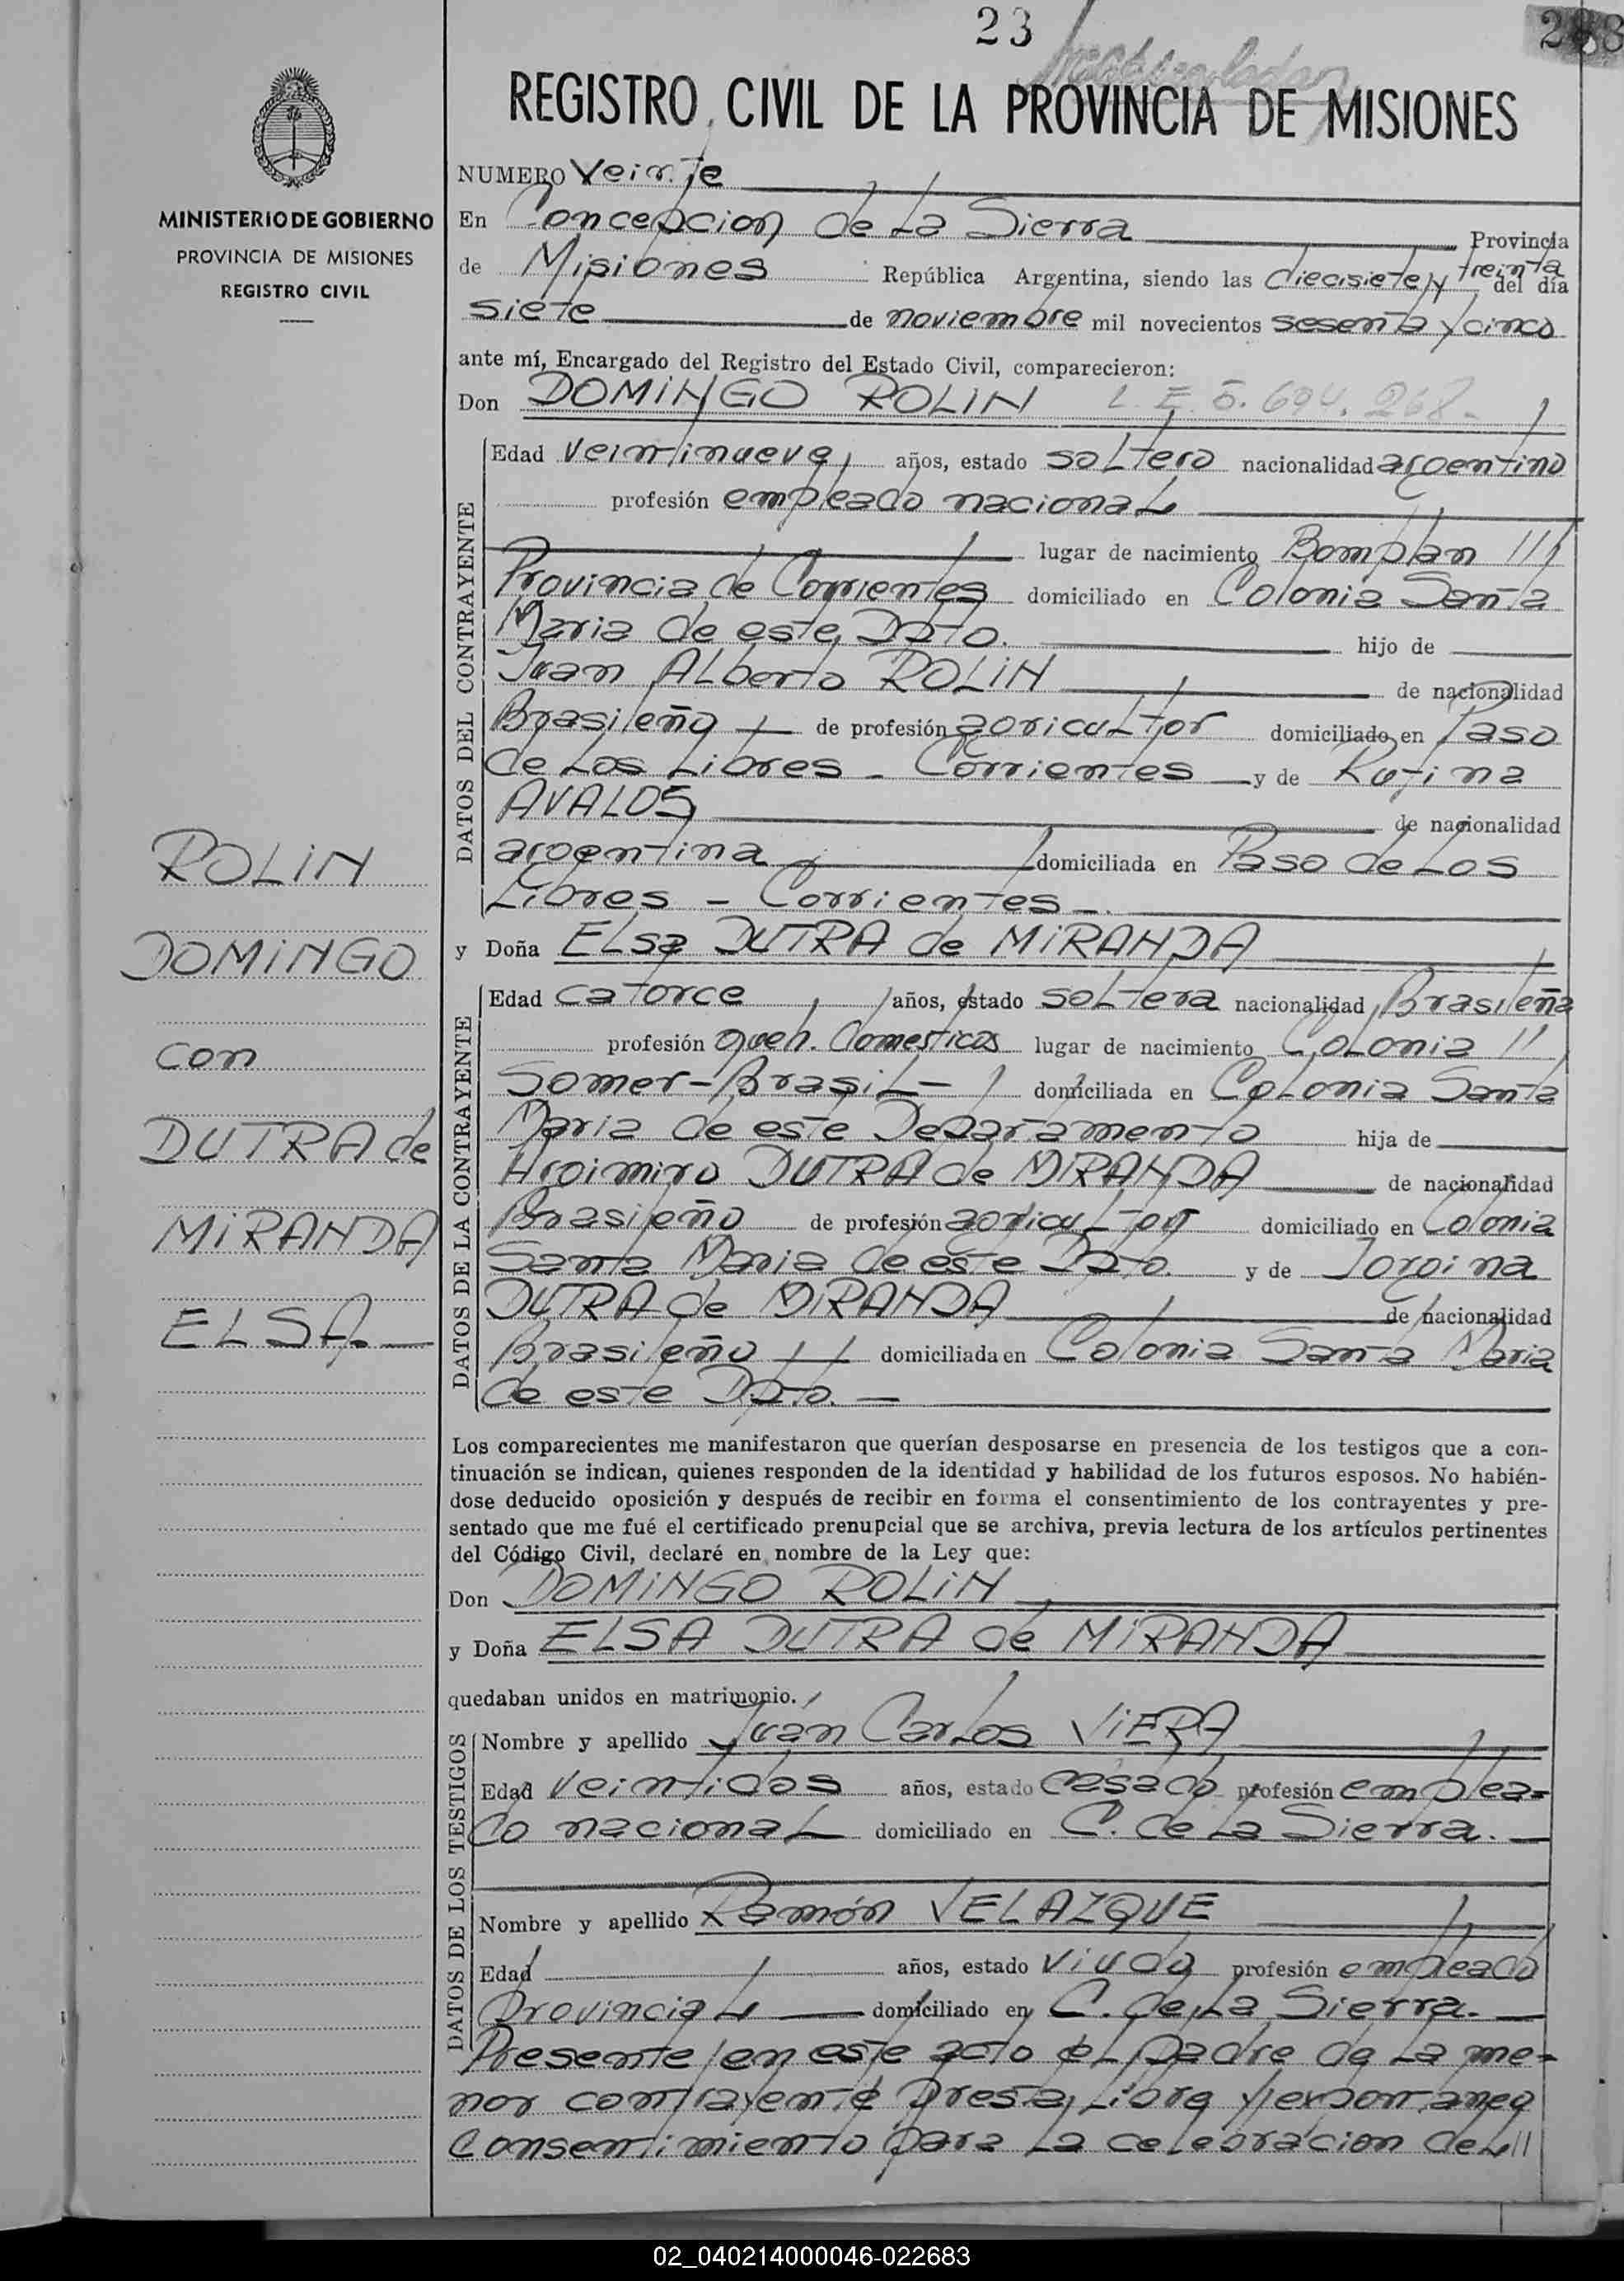 23
283
REGISTRO CIVIL DE LA PROVINCIA DE MISIONES
MINISTERIO DE GOBIERNO
PROVINCIA DE MISIONES
REGISTRO CIVIL
NUMERO Veinte
En Concepcion de La Sierra Provincia
de Misiones República Argentina, siendo las diecisiete y treinta del día
siete de noviembre mil novecientos sesenta y cinco
ante mí, Encargado del Registro del Estado Civil, comparecieron:
Don DOMINGO ROLIN L. E. 5.694.268.-
DATOS DEL CONTRAYENTE
Edad veintinueve años, estado soltero nacionalidad argentino
profesión empleado nacional
lugar de nacimiento Bomplan //
Provincia de Corrientes domiciliado en Colonia Santa
Maria de este Dpto. hijo de
Juan Alberto ROLIN de nacionalidad
Brasileño de profesión agricultor domiciliado en Paso
de Los Libres - Corrientes y de Rufina
AVALOS de nacionalidad
argentina domiciliada en Paso de Los
Libres - Corrientes -.
y Doña ELsa DUTRA de MIRANDA
DATOS DE LA CONTRAYENTE
Edad catorce años, estado soltera nacionalidad Brasileña
profesión queh. domesticos lugar de nacimiento Colonia //
Somer-Brasil- domiciliada en Colonia Santa
Maria de este Departamento hija de
Argimiro DUTRA de MIRANDA de nacionalidad
Brasileño de profesión agricultor domiciliado en Colonia
Santa Maria de este Dpto. y de Jorgina
DUTRA de MIRANDA de nacionalidad
Brasileño domiciliada en Colonia Santa Maria
de este Dpto. -
ROLIN
DOMINGO
con
DUTRA de
MIRANDA
ELSA.-
Los comparecientes me manifestaron que querían desposarse en presencia de los testigos que a con-
tinuación se indican, quienes responden de la identidad y habilidad de los futuros esposos. No habién-
dose deducido oposición y después de recibir en forma el consentimiento de los contrayentes y pre-
sentado que me fué el certificado prenupcial que se archiva, previa lectura de los artículos pertinentes
del Código Civil, declaré en nombre de la Ley que:
Don DOMINGO ROLIN
y Doña ELSA DUTRA de MIRANDA
quedaban unidos en matrimonio.
DATOS DE LOS TESTIGOS
Nombre y apellido Juan Carlos VIERA
Edad veintidos años, estado casado profesión emplea-
do nacional domiciliado en C. de La Sierra.-
Nombre y apellido Ramón VELAZQUE
Edad años, estado viudo profesión empleado
Provincial domiciliado en C. de La Sierra.-
Presente en este acto el padre de La me-
nor contrayente presta Libre y expontaneo
consentimiento para La celebracion del //
02_040214000046-022683